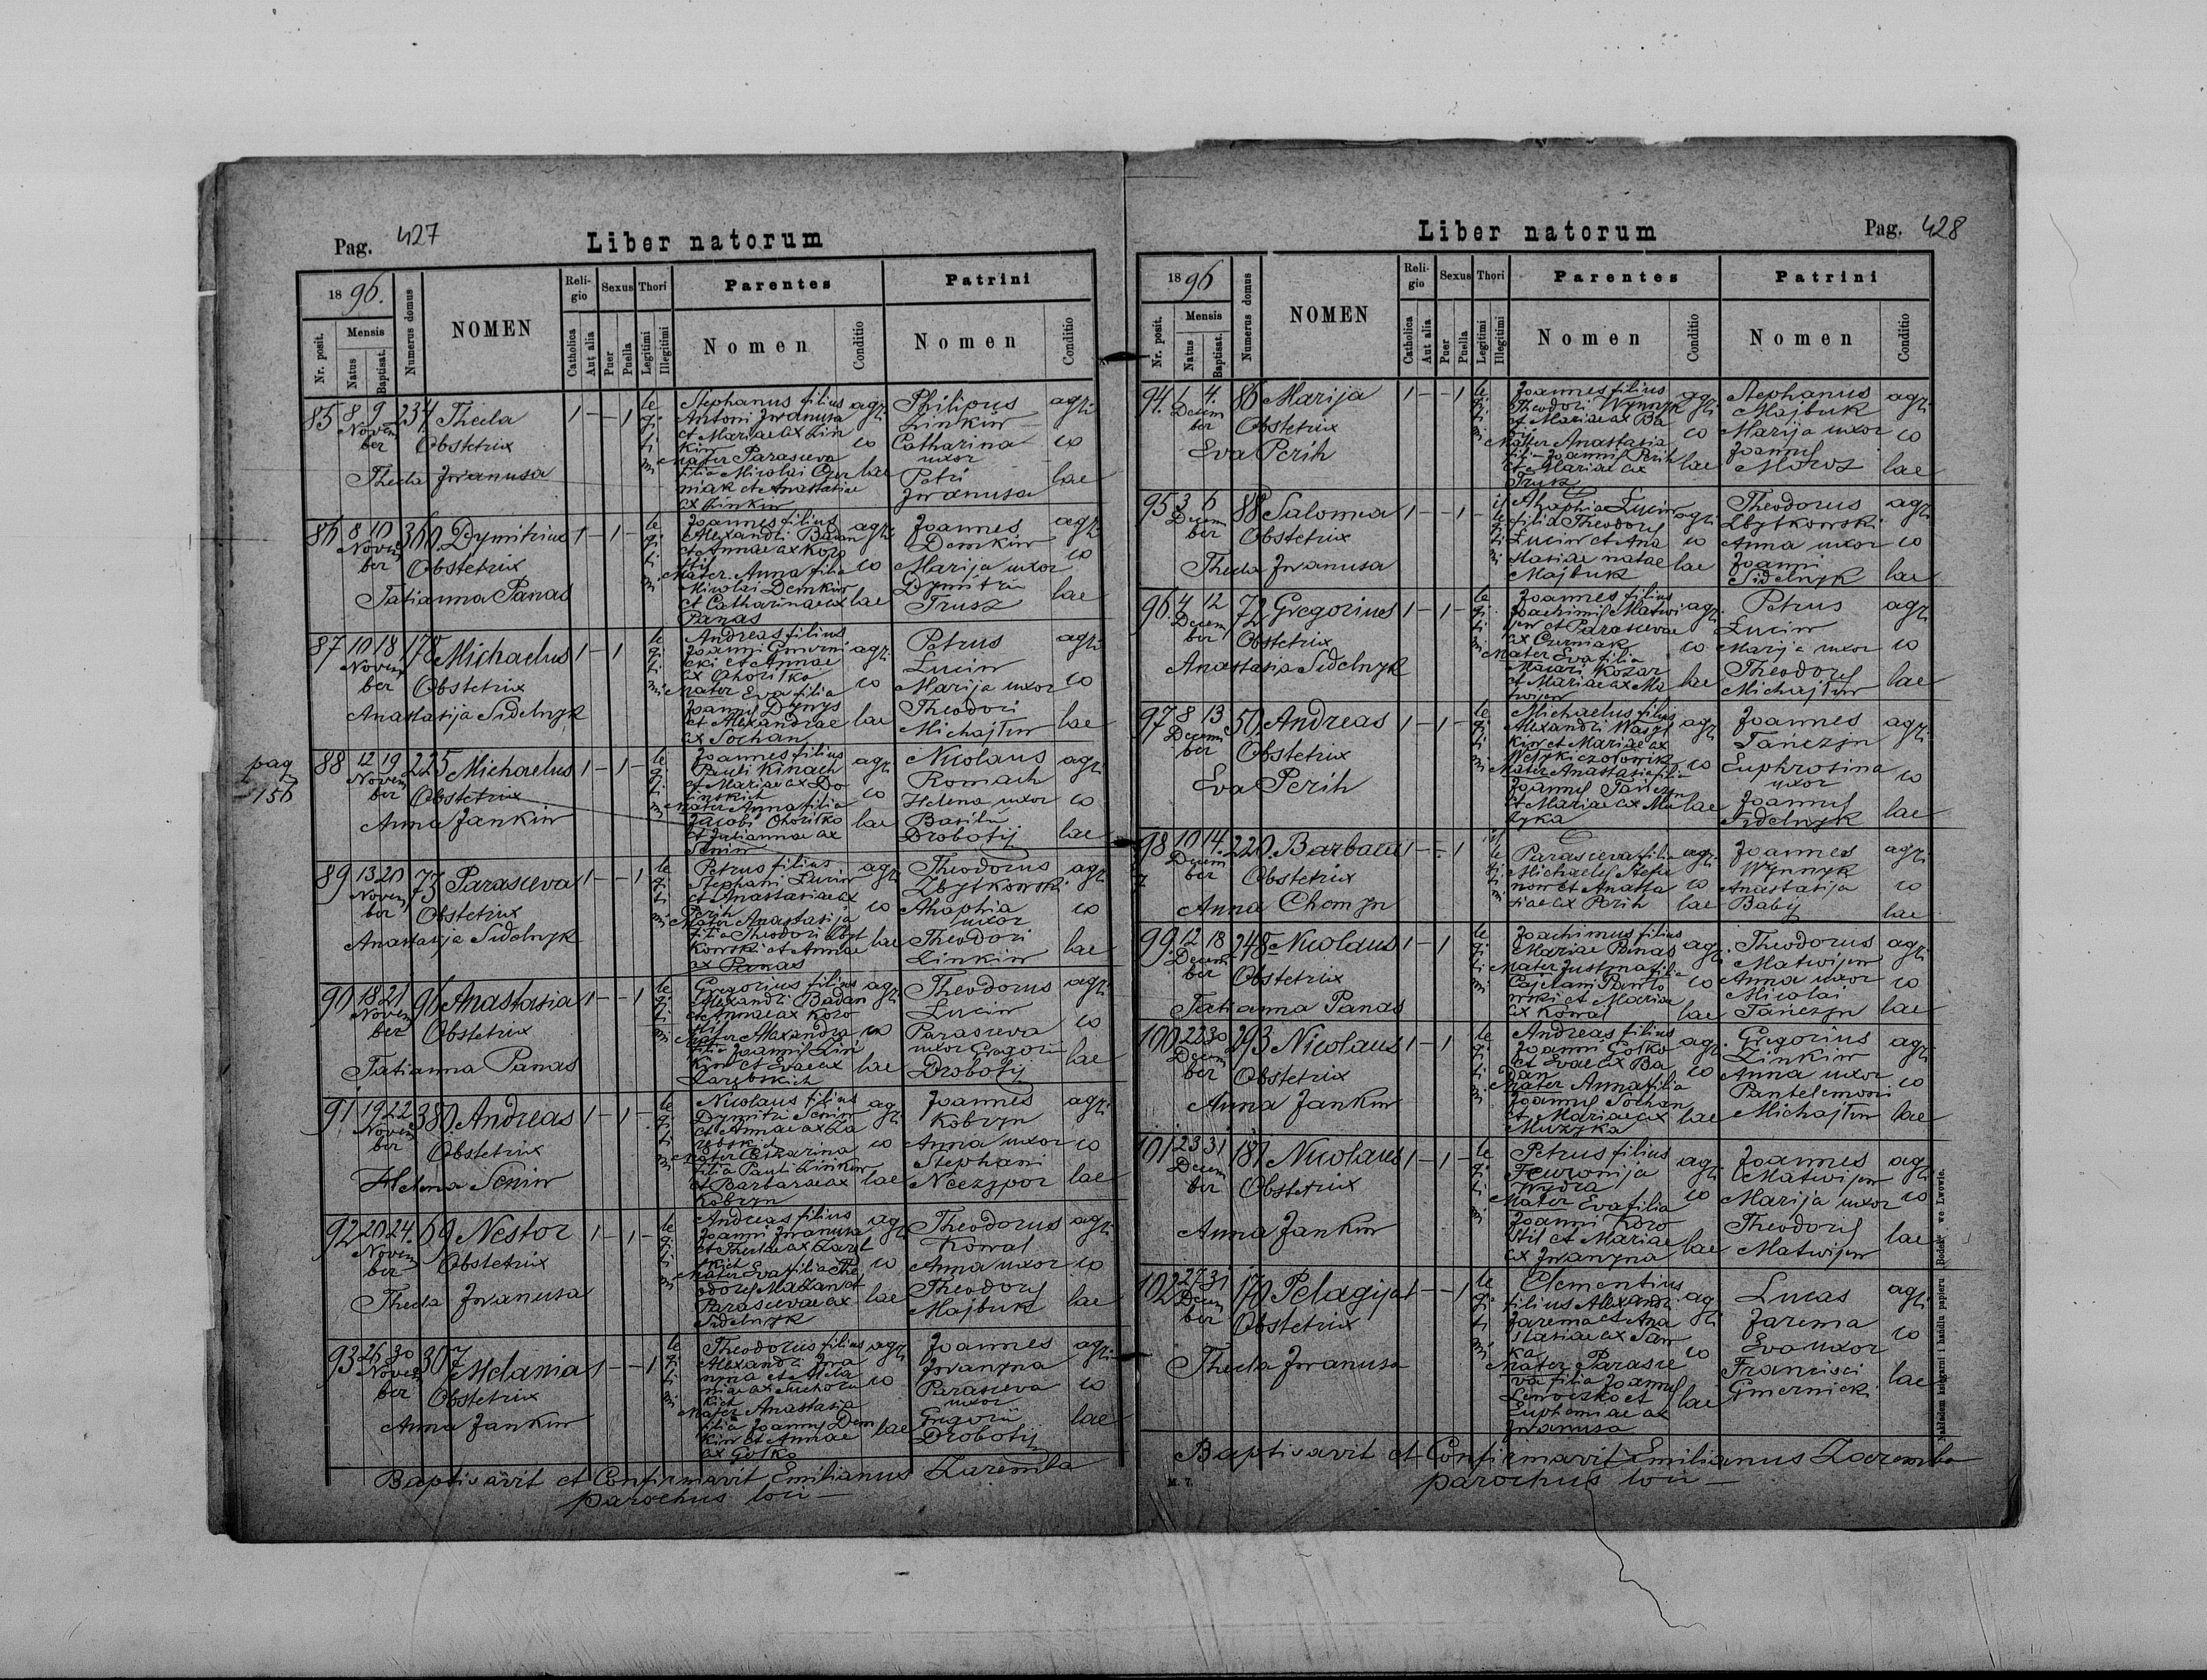 Pag. 427
Liber natorum
1896.
Nr. posit.
Mensis
Natus
Baptisat.
Numerus domus
NOMEN
Religio
Catholica
Aut alia
Sexus
Puer
Puella
Thori
Legitimi
Illegitimi
Parentes
Nomen
Conditio
Patrini
Nomen
Conditio
85 8 9 234 Thecla 1 – – 1
Novem
ber
Obstetrix
Thecla Iwanusa
legitimi
Stephanus filius
Antoni Iwanusa
et Mariae ax Lin
kiw
Mater Parasceva
filia Nicolai
niak et Anastasiae
ax Linkiw
agri
co
lae
Philipus
Linkiw
Catharina
uxor
Petri
Iwanusa
agri
co
lae
86 8 10 360 Dymitrius 1 – 1 –
Novem
ber
Obstetrix
Tatianna Panas
legitimi
Joannes filius
Alexandri Badan
et Annae ax Koro
stil
Mater Anna filia
Nicolai Demkiw
et Catharinae ax
Panas
agri
co
lae
Joannes
Demkiw
Marija uxor
Dymitri
Trusz
agri
co
lae
87 10 18 178 Michaelus 1 – 1
Novem
ber
Obstetrix
Anastasija Sidelnyk
legitimi
Andreas filius
Joanni Gmerni
cki et Annae
ax Ohoritko
Mater Eva filia
Joannis Dynys
et Alexandrae
ax Sochan
agri
co
lae
Petrus
Luciw
Marija uxor
Theodori
Michajłiw
agri
co
lae
pag
156
88 12 19 225 Michaelus 1 – 1 –
Novem
ber
Obstetrix
Anna Jankiw
legitimi
Joannes filius
Pauli Kinach
et Mariae ax Do
linskich
Mater Anna filia
Jacobi Ohoritko
et Juliannae ax
Seniw
agri
co
lae
Nicolaus
Romach
Helena uxor
Basilii
Drobotij
agri
co
lae
89 13 20 73 Parasceva 1 – – 1
Novem
ber
Obstetrix
Anastasija Sidelnyk
legitimi
Petrus filius
Stephani Luciw
et Anastasiae ax
Perih
Mater Anastasija
filia Theodori Zbyt
kowski et Annae
ax Panas
agri
co
lae
Theodorus
Zbytkowski
Ahaphia
uxor
Theodori
Linkiw
agri
co
lae
90 18 21 96 Anastasia 1 – – 1
Novem
ber
Obstetrix
Tatianna Panas
legitimi
Gregorius filius
Alexandri Badan
et Annae ax Koro
stil
Mater Alexandra
filia Joannis Lin
kiw et Evae ax
Zarębskich
agri
co
lae
Theodorus
Luciw
Parasceva
uxor Gregorii
Drobotij
agri
co
lae
91 19 22 380 Andreas 1 – 1 –
Novem
ber
Obstetrix
Helena Seniw
legitimi
Nicolaus filius
Dymitri Seniw
et Annae ax Za
rębskich
Mater Catharina
filia Pauli Linkiw
et Barbarae ax
Kobryn
agri
co
lae
Joannes
Kobryn
Anna uxor
Stephani
Neczypor
agri
co
lae
92 20 24 69 Nestor 1 – 1 –
Novem
ber
Obstetrix
Thecla Iwanusa
legitimi
Andreas filius
Joanni Iwanusa
et Theclae ax Zaręb
skich
Mater Eva filia The
odori Mazan et
Parascevae ax
Sidelnyk
agri
co
lae
Theodorus
Kowal
Anna uxor
Theodori
Majbuk
agri
co
lae
93 26 30 307 Melania 1 – – 1
Novem
ber
Obstetrix
Anna Jankiw
legitimi
Theodorus filius
Alexandri Iwa
nyna et Mela
niae ax Suchoro
kich
Mater Anastasia
filia Joannis Dem
kiw et Annae
ax Gotko
agri
co
lae
Joannes
Iwanyna
Parasceva
uxor
Gregorii
Drobotij
agri
co
lae
Baptisavit et Confirmavit Emilianus Zaremba
parochus loci –
Liber natorum
Pag. 428
1896
Nr. posit.
Mensis
Natus
Baptisat.
Numerus domus
NOMEN
Religio
Catholica
Aut alia
Sexus
Puer
Puella
Thori
Legitimi
Illegitimi
Parentes
Nomen
Conditio
Patrini
Nomen
Conditio
94. 1 4. 86 Marija 1 – – 1
Decem
ber
Obstetrix
Eva Perih
legitimi
Joannes filius
Theodori Wynnyk
et Mariae ax Ba
bij
Mater Anastasia
filia Joannis Perih
et Mariae ax
Truk
agri
co
lae
Stephanus
Majbuk
Marija uxor
Joannis
Moroz
agri
co
lae
95 3 6 88 Salomea 1 – – 1 –
Decem
ber
Obstetrix
Thecla Iwanusa
illegitimi
Ahaphia Luciw
filia Theodori
Luciw et Ana
stasiae natae
Majbuk
agri
co
lae
Theodorus
Zbytkowski
Anna uxor
Joanni
Sidelnyk
agri
co
lae
96. 4 12 72 Gregorius 1 – 1 –
Decem
ber
Obstetrix
Anastasia Sidelnyk
legitimi
Joannes filius
Joachimi Matwi
jew et Parascevae
ax Curniak
Mater Eva filia
Macari Kozar
et Mariae ax Ma
twijew
agri
co
lae
Petrus
Luciw
Marija uxor
Theodori
Michajłiw
agri
co
lae
97 8 13 50 Andreas 1 – 1 –
Decem
ber
Obstetrix
Eva Perih
legitimi
Michaelus filius
Alexandri Wasyl
kiw et Mariae ax
Mater Anastasia filia
Joannis Tanczyn
et Mariae ax Mu
zyka
agri
co
lae
Joannes
Tanczyn
Euphrosina
uxor
Joannis
Sidelnyk
agri
co
lae
98 10 14. 220. Barbara 1 – – 1
Decem
ber
Obstetrix
Anna Chomyn
illegitimi
Parasceva filia
Michaelis Stefa
now et Anasta
siae ax Perih
agri
co
lae
Joannes
Wynnyk
Anastasija
Babij
agri
co
lae
99. 12 18 248 Nicolaus 1 – 1
Decem
ber
Obstetrix
Tatianna Panas
legitimi
Joachimus filius
Mariae Panas
Mater Justyna filia
Cajetani Pawło
wski et Mariae
ax Kowal
agri
co
lae
Theodorus
Matwijew
Anna uxor
Nicolai
Tanczyn
agri
co
lae
100 22 30 293 Nicolaus 1 – 1
Decem
ber
Obstetrix
Anna Jankiw
legitimi
Andreas filius
Joanni Gotko
et Evae ax Ba
dan
Mater Anna filia
Joannis Sochan
et Mariae ax
Muzyka
agri
co
lae
Gregorius
Linkiw
Anna uxor
Pantelemoni
Michajłiw
agri
co
lae
101 23 31 187 Nicolaus 1 – 1 –
Decem
ber
Obstetrix
Anna Jankiw
legitimi
Petrus filius
Fewronija
Wydra
Mater Eva filia
Joanni Koro
stil et Mariae
ax Iwanyna
agri
co
lae
Joannes
Matwijew
Marija uxor
Theodori
Matwijew
agri
co
lae
102 27 31 170 Pelagija 1 – – 1
Decem
ber
Obstetrix
Thecla Iwanusa
legitimi
Clementius
filius Alexandri
Jarema et Ana
stasiae ax San
ka
Mater Parasce
va filia Joannis
Lewoczko et
Euphemiae ax
Iwanusa
agri
co
lae
Lucas
Jarema
Eva uxor
Francisci
Gmernicki
agri
co
lae
Baptisavit et Confirmavit Emilianus Zaremba
parochus loci –
M. 7.
Nakładem księgarni i handlu papieru „Bodek“ we Lwowie.